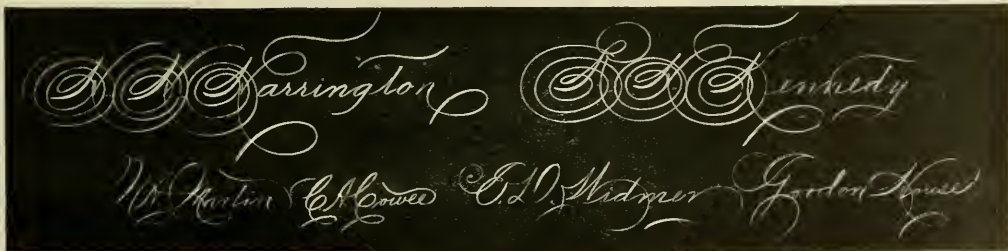 H. H. Harrington
Kennedy
Martin C. A. Cowee E. D. Widmer Gordon House